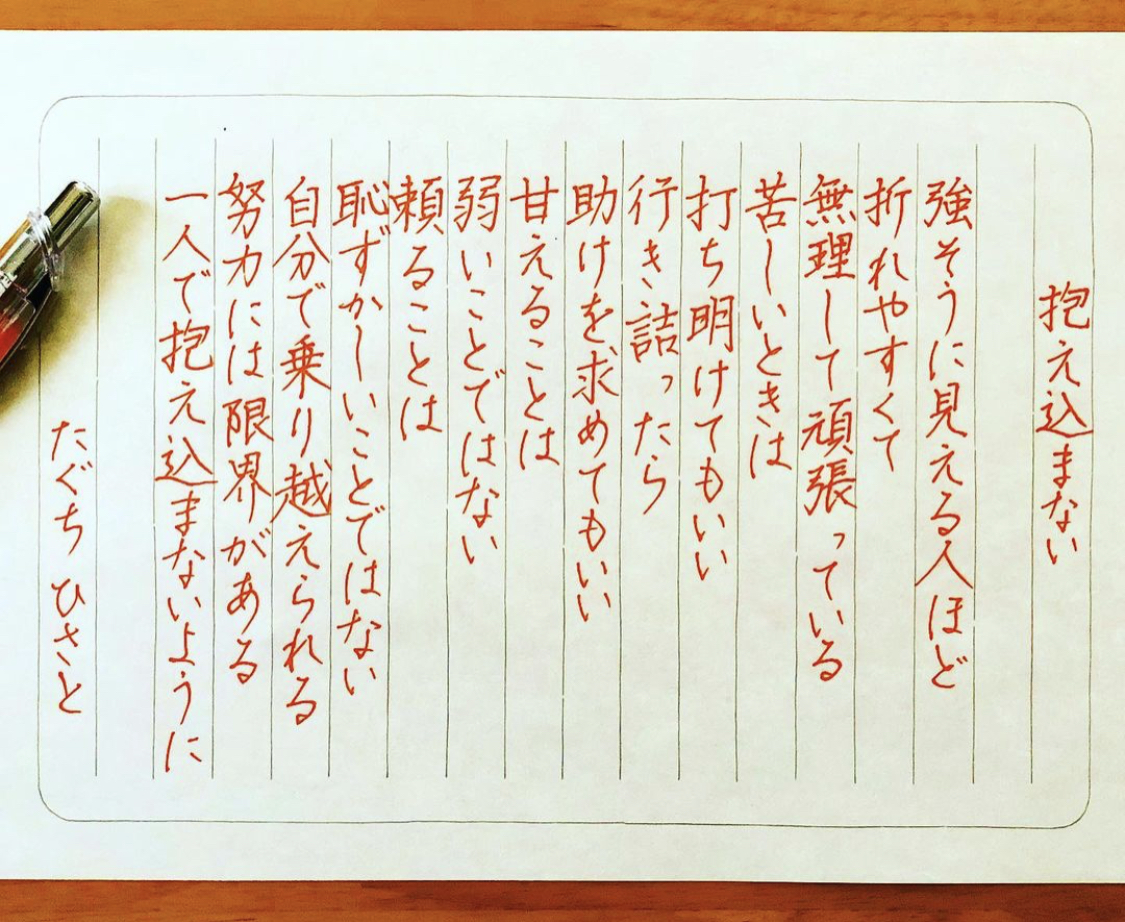 抱え込まない
強そうに見える人ほど
折れやすくて
無理して頑張っている
苦しいときは
打ち明けてもいい
行き詰ったら
助けを求めてもいい
甘えることは
弱いことではない
頼ることは
恥ずかしいことではない
自分で乗り越えられる
努力には限界がある
一人で抱え込まないように
たぐち ひさと